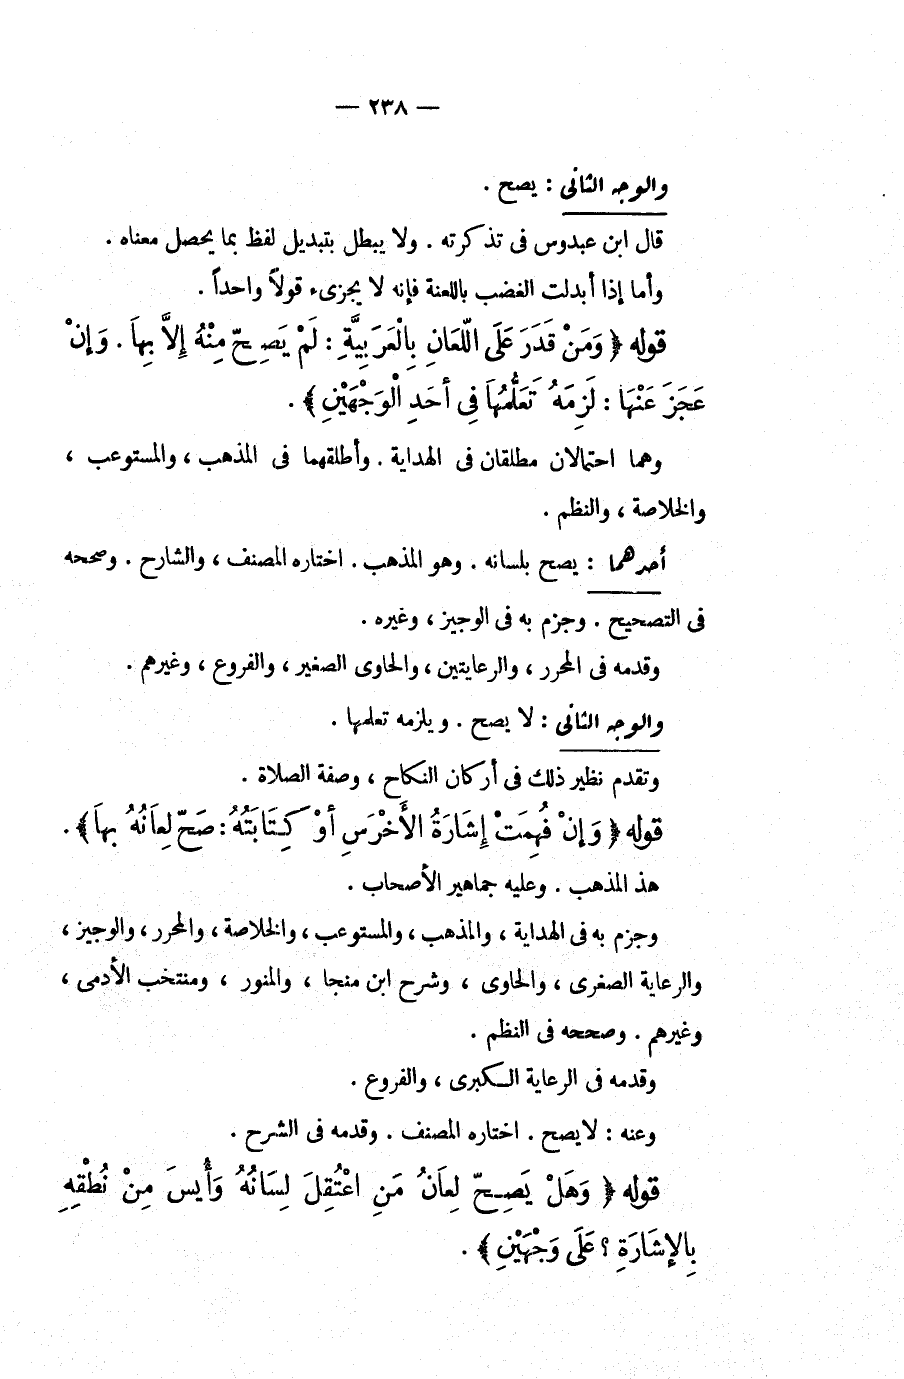 — ٢٣٨ —
والوجه الثانى : يصح .
قال ابن عبدوس فى تذكرته . ولا يبطل بتبديل لفظ بما يحصل معناه .
وأما إذا أبدلت الغضب باللعنة فإنه لا يجزىء قولاً واحداً .
قوله ﴿ وَمَنْ قَدَرَ عَلَى اللِّعَانِ بِالْعَرَبِيَّةِ : لَمْ يَصِحّ مِنْهُ إِلاَّ بِهاَ . وَإِنْ
عَجَزَ عَنْهَا : لَزِمَهُ تَعَلُّمُهاَ فِي أَحَدِ الْوَجْهَيْنِ ﴾ .
وهما احتمالان مطلقان فى الهداية . وأطلقهما فى المذهب ، والمستوعب ،
والخلاصة ، والنظم .
أحدهما : يصح بلسانه . وهو المذهب . اختاره المصنف ، والشارح . وصححه
فى التصحيح . وجزم به فى الوجيز ، وغيره .
وقدمه فى المحرر ، والرعايتين ، والحاوى الصغير ، والفروع ، وغيرهم .
والوجه الثانى : لا يصح . ويلزمه تعلمها .
وتقدم نظير ذلك فى أركان النكاح ، وصفة الصلاة .
قوله ﴿ وَإِنْ فُهِمَتْ إِشَارَةُ الأَخْرَسِ أَوْ كِتَابَتُهُ : صَحّ لِعاَنُهُ بِهاَ ﴾ .
هذ المذهب . وعليه جماهير الأصحاب .
وجزم به فى الهداية ، والمذهب ، والمستوعب ، والخلاصة ، والمحرر ، والوجيز ،
والرعاية الصغرى ، والحاوى ، وشرح ابن منجا ، والمنور ، ومنتخب الأدمى ،
وغيرهم . وصححه فى النظم .
وقدمه فى الرعاية الكبرى ، والفروع .
وعنه : لايصح . اختاره المصنف . وقدمه فى الشرح .
قوله ﴿ وَهَلْ يَصِحّ لِعاَنُ مَنِ اعْتُقِلَ لِسَانُهُ وَأُيِسَ مِنْ نُطْقِهِ
بِالإِشَارَةِ ؟ عَلَى وَجْهَيْنِ ﴾ .